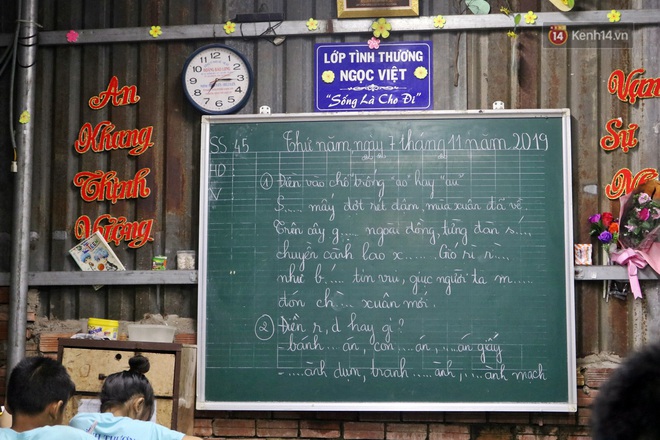 14 Kenh14.vn
LỚP TÌNH THƯƠNG
NGỌC VIỆT
"Sống Là Cho Đi"
An
Khang
Thịnh
Vượng
Vạn
Sự
12 1 2 3 4 5 6 7 8 9 10 11
SS 45
HD
V
Thứ năm, ngày 7 tháng 11 năm 2019
1 Điền vào chỗ trống "ao" hay "au"
S..... mấy đợt rét đậm, mùa xuân đã về.
Trên cây g.... ngoài đồng, từng đàn s....
chuyền cành lao x...... Gió rì r....
như b..... tin vui, giục người ta m.....
đón ch.... xuân mới.
2 Điền r, d hay gi?
- bánh....án, con....án, ....án giấy
- .....ành dụm, tranh.....ành, ....ành mạch